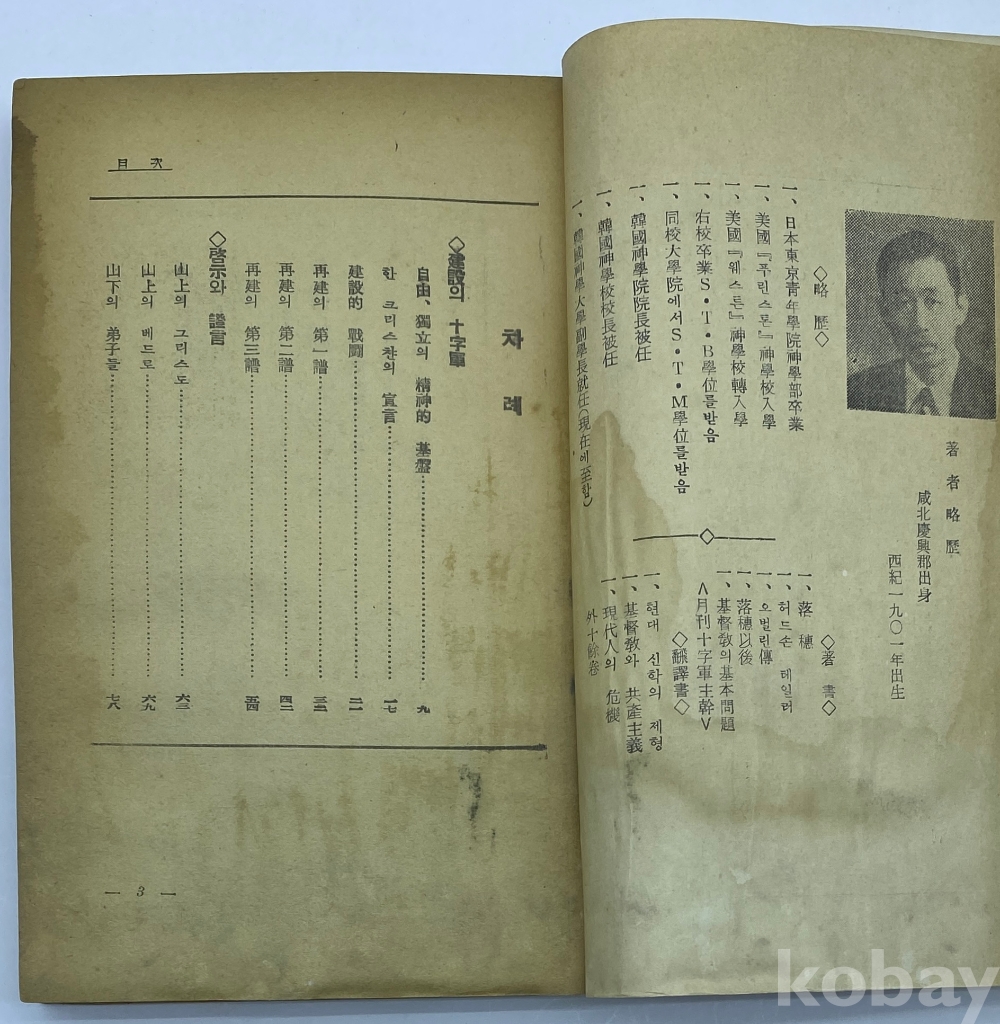 著者略歷
咸北慶興郡出身
西紀一九〇一年出生
◇略 歷◇
一、日本東京靑年學院神學部卒業
一、美國『푸린스톤』神學校入學
一、美國『웨스튼』神學校轉入學
一、右校卒業S·T·B學位를받음
一、同校大學院에서S·T·M學位를받음
一、韓國神學院院長被任
一、韓國神學校校長被任
一、韓國神學大學副學長就任(現在에至함)
◇著 書◇
一、落 穗
一、허드손 테일러
一、오벌린傳
一、落穗以後
一、基督敎의基本問題
∧月刊十字軍主幹∨
◇飜譯書◇
一、현대 신학의 제형
一、基督敎와 共產主義
一、現代人의 危機
外十餘卷
目 次
차 례
◇建設의 十字軍
自由、獨立의 精神的 基盤 九
한 크리스챤의 宣言 一七
建設的 戰鬪 二一
再建의 第一譜 三二
再建의 第二譜 四二
再建의 第三譜 五四
◇啓示와 證言
山上의 그리스도 六三
山上의 베드로 六九
山下의 弟子들 七八
— 3 —
kobay